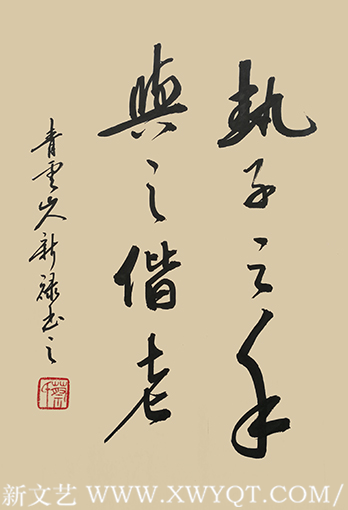 執子之手
與之偕老
青雲山人新祿書之
新文艺 WWW.XWYQT.COM/